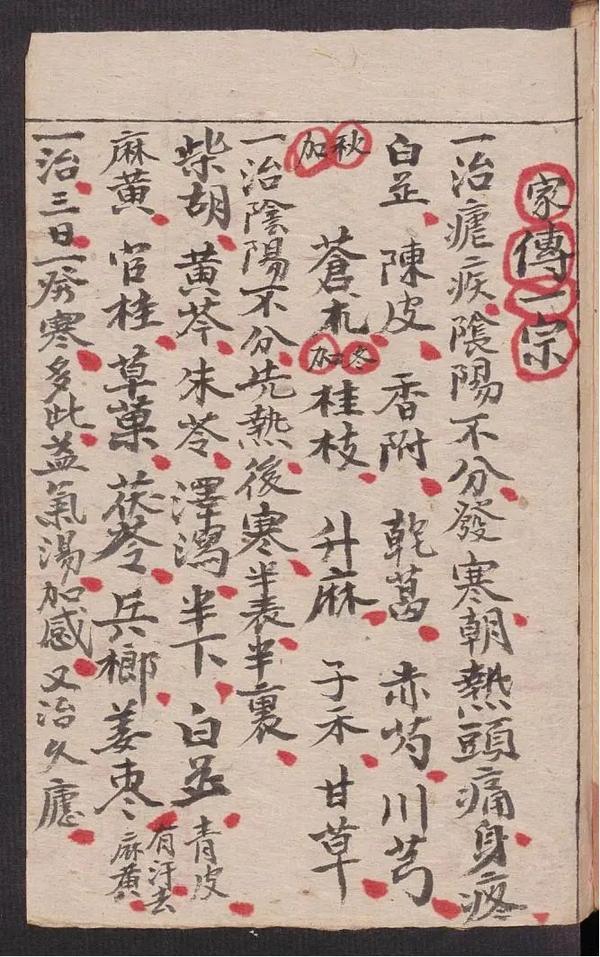 家傳一宗
一治瘧疾陰陽不分發寒朝熱頭痛身疼
白芷 陳皮 香附 乾葛 赤芍 川芎
秋加 蒼朮 冬加 桂枝 升麻 子禾 甘草
一治陰陽不分先熱後寒半表半裏
柴胡 黃芩 朱苓 澤瀉 半下 白芷 青皮
麻黃 官桂 草菓 茯苓 兵榔 姜枣 有汗去麻黃
一治三日一發寒多此益氣湯加感又治久